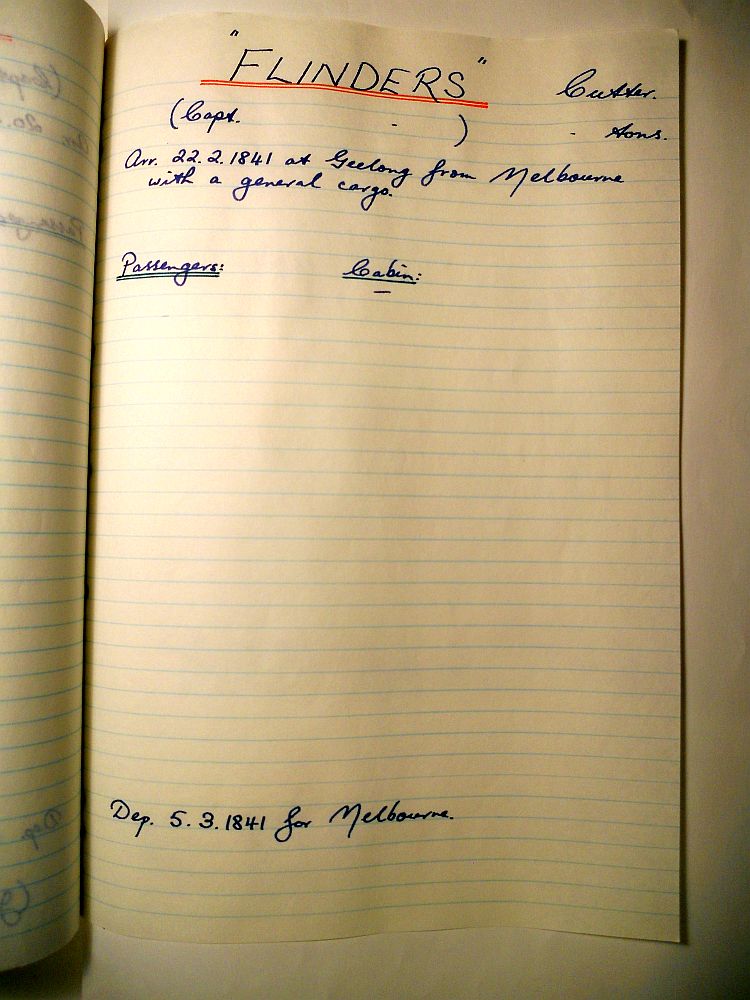 "FLINDERS" Cutter.
(Capt. - ) - tons.
Arr. 22.2.1841 at Geelong from Melbourne
with a general cargo.
Passengers: Cabin:
—
Dep. 5.3.1841 for Melbourne.